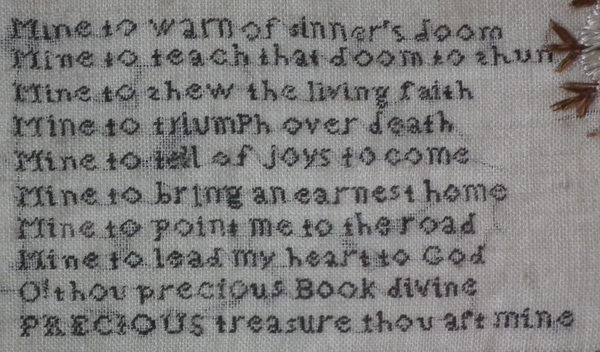 Mine to warn of sinner's doom
Mine to teach that doom to shun
Mine to shew the living faith
Mine to triumph over death
Mine to tell of joys to come
Mine to bring an earnest home
Mine to point me to the road
Mine to lead my heart to God
O! thou precious Book divine
PRECIOUS treasure thou art mine